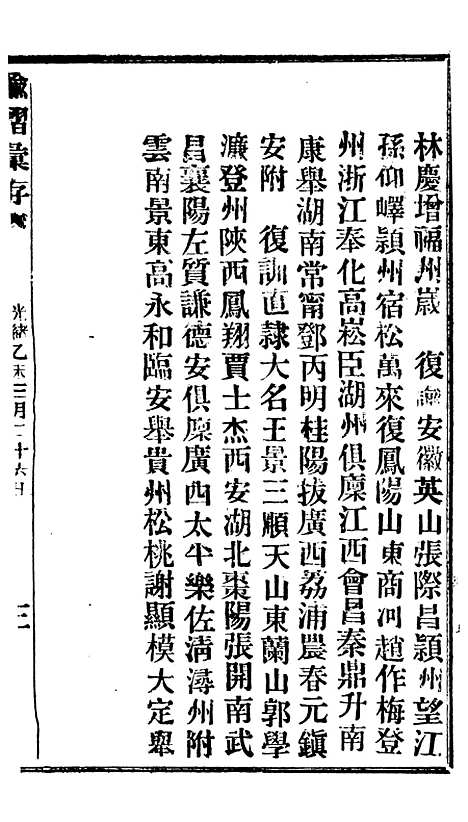 林慶增福州歲　復諭安徽英山張際昌潁州望江
孫仰嶧潁州宿松萬來復鳳陽山東商河趙作梅登
州浙江奉化高崧臣湖州俱廩江西會昌秦鼎升南
康舉湖南常甯鄧丙明桂陽拔廣西荔浦農春元鎮
安附　復訓直隸大名王景三順天山東蘭山郭學
濂登州陝西鳳翔賈士杰西安湖北棗陽張開南武
昌襄陽左質謙德安俱廩廣西太平樂佐清潯州附
雲南景東高永和臨安舉貴州松桃謝顯模大定舉
諭摺彙存
光緒乙未三月二十六日
三